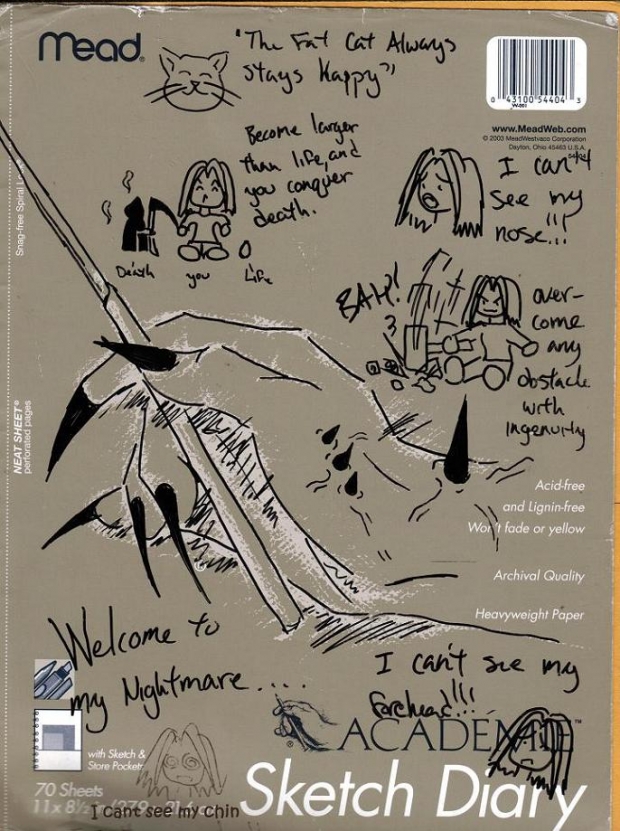 Mead
"The Fat Cat Always
Stays Happy"
0 43100 54404 3
www.MeadWeb.com
© 2003 MeadWestvaco Corporation
Dayton, Ohio 45463 U.S.A.
Become larger
than life, and
you conquer
death.
Death you Life
I can't
see my
nose...!!!
Snag-free Spiral
BAH!
over-
come
any
obstacle
with
Ingenuity
NEAT SHEET®
perforated pages
Acid-free
and Lignin-free
Won't fade or yellow
Archival Quality
Heavyweight Paper
Welcome to
my Nightmare.....
I can't see my
forehead!!!
ACADEMIE™
Sketch Diary
with Sketch &
Store Pockets
70 Sheets
11 x 8½
I cant see my chin